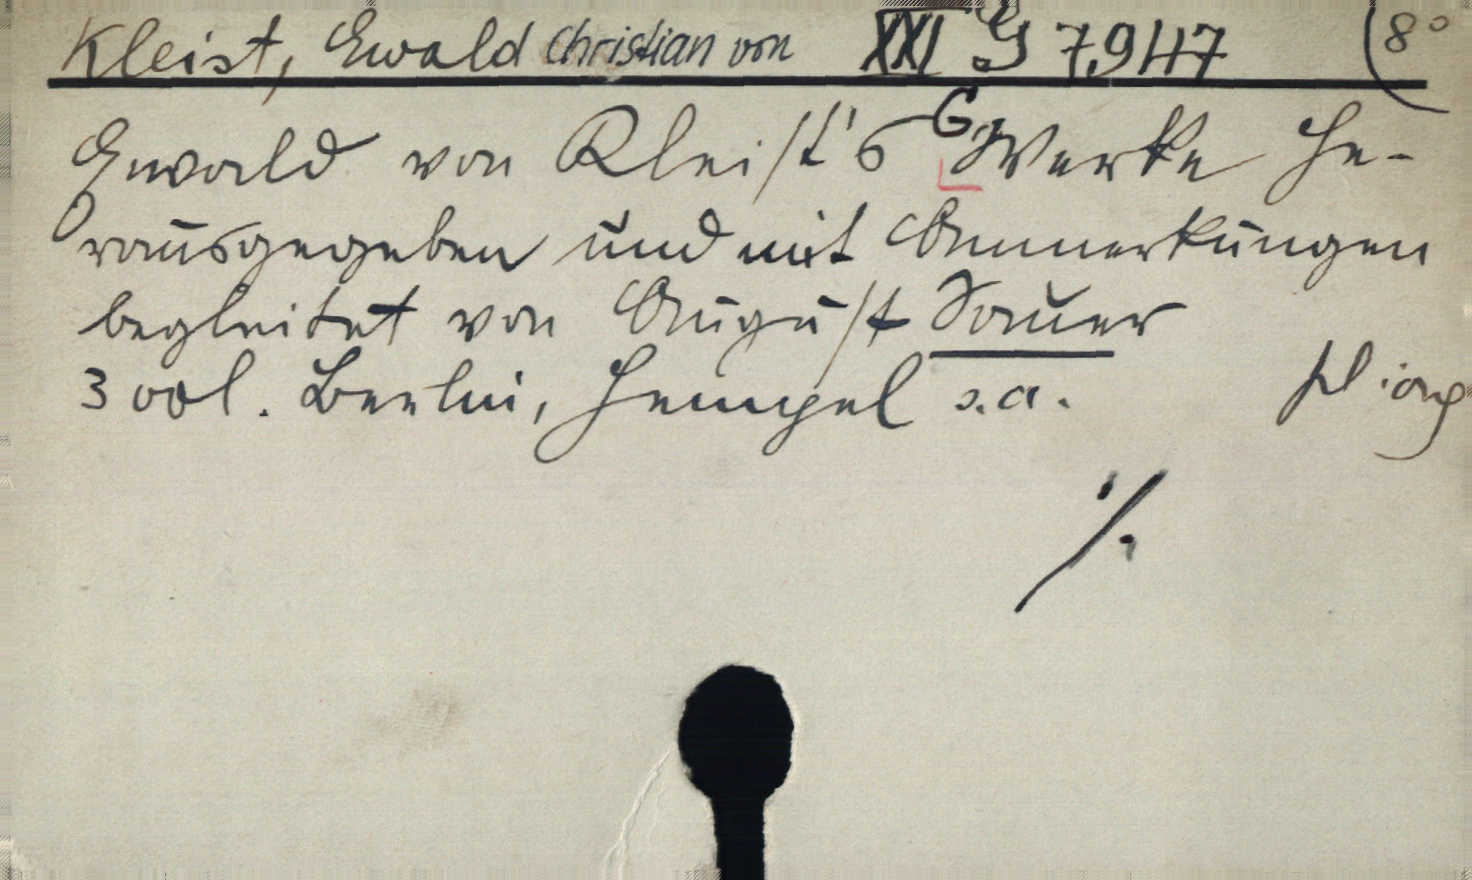 Kleist, Ewald Christian von XXI G 7947 8°
G
Ewald von Kleist's Werke He-
rausgegeben und mit Anmerkungen
begleitet von August Sauer
3 vol. Berlin, Hempel s.a.